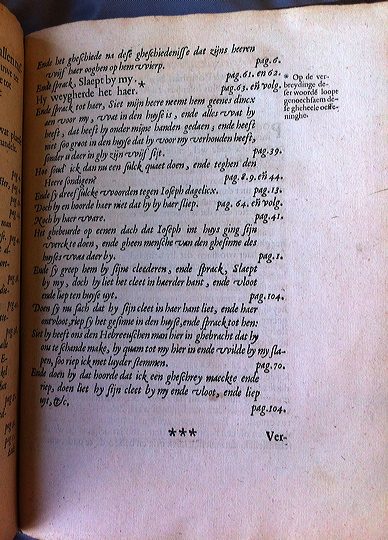 Ende het gheschiede na dese gheschiedenisse dat zijns heeren
wijf haer ooghen op hem wierp. pag.6.
Ende sprack, Slaept by my. * pag.61. en 62.
Hy weygherde het haer. pag.63. en volg.
Ende sprack tot haer, Siet mijn heere neemt hem geenes dincx
aen voor my, wat in den huyse is, ende alles wat hy
heeft, dat heeft hy onder mijne handen gedaen; ende heeft
niet soo groot in den huyse dat hy voor my verhouden heeft,
sonder u daer in ghy zijn wijf sijt. pag.39.
Hoe soud' ick dan nu een sulck quaet doen, ende teghen den
Heere sondigen? pag.8.9. en 44.
Ende sy dreef sulcke woorden tegen Ioseph dagelicx. pag.13.
Doch hy en hoorde haer niet dat hy by haer sliep. pag. 64. en volg.
Noch by haer ware. pag.41.
Het ghebeurde op eenen dach dat Ioseph int huys ging sijn
werck te doen, ende gheen mensche van den ghesinne des
huyses was daer by. pag.1.
Ende sy greep hem by sijne cleederen, ende sprack, Slaept
by my, doch hy liet het cleet in haerder hant, ende vloot
ende liep ten huyse uyt. pag.104.
Doen sy nu sach dat hy sijn cleet in haer hant liet, ende haer
ontvloot, riep sy het gesinne in den huyse, ende sprack tot hen:
Siet hy heeft ons den Hebreeuschen man hier in ghebracht dat hy
ons te schande make, hy quam tot my hier in ende wilde by my sla-
pen, soo riep ick met luyder stemmen. pag.70.
Ende doen hy dat hoorde dat ick een gheschrey maeckte ende
riep, doen liet hy sijn cleet by my ende vloot, ende liep
uyt, &c. pag.104.
* Op de ver-
breydinge de-
ser woorde loopt
genoechsaem de-
se gheheele oeffe-
ninghe.
***
Ver-